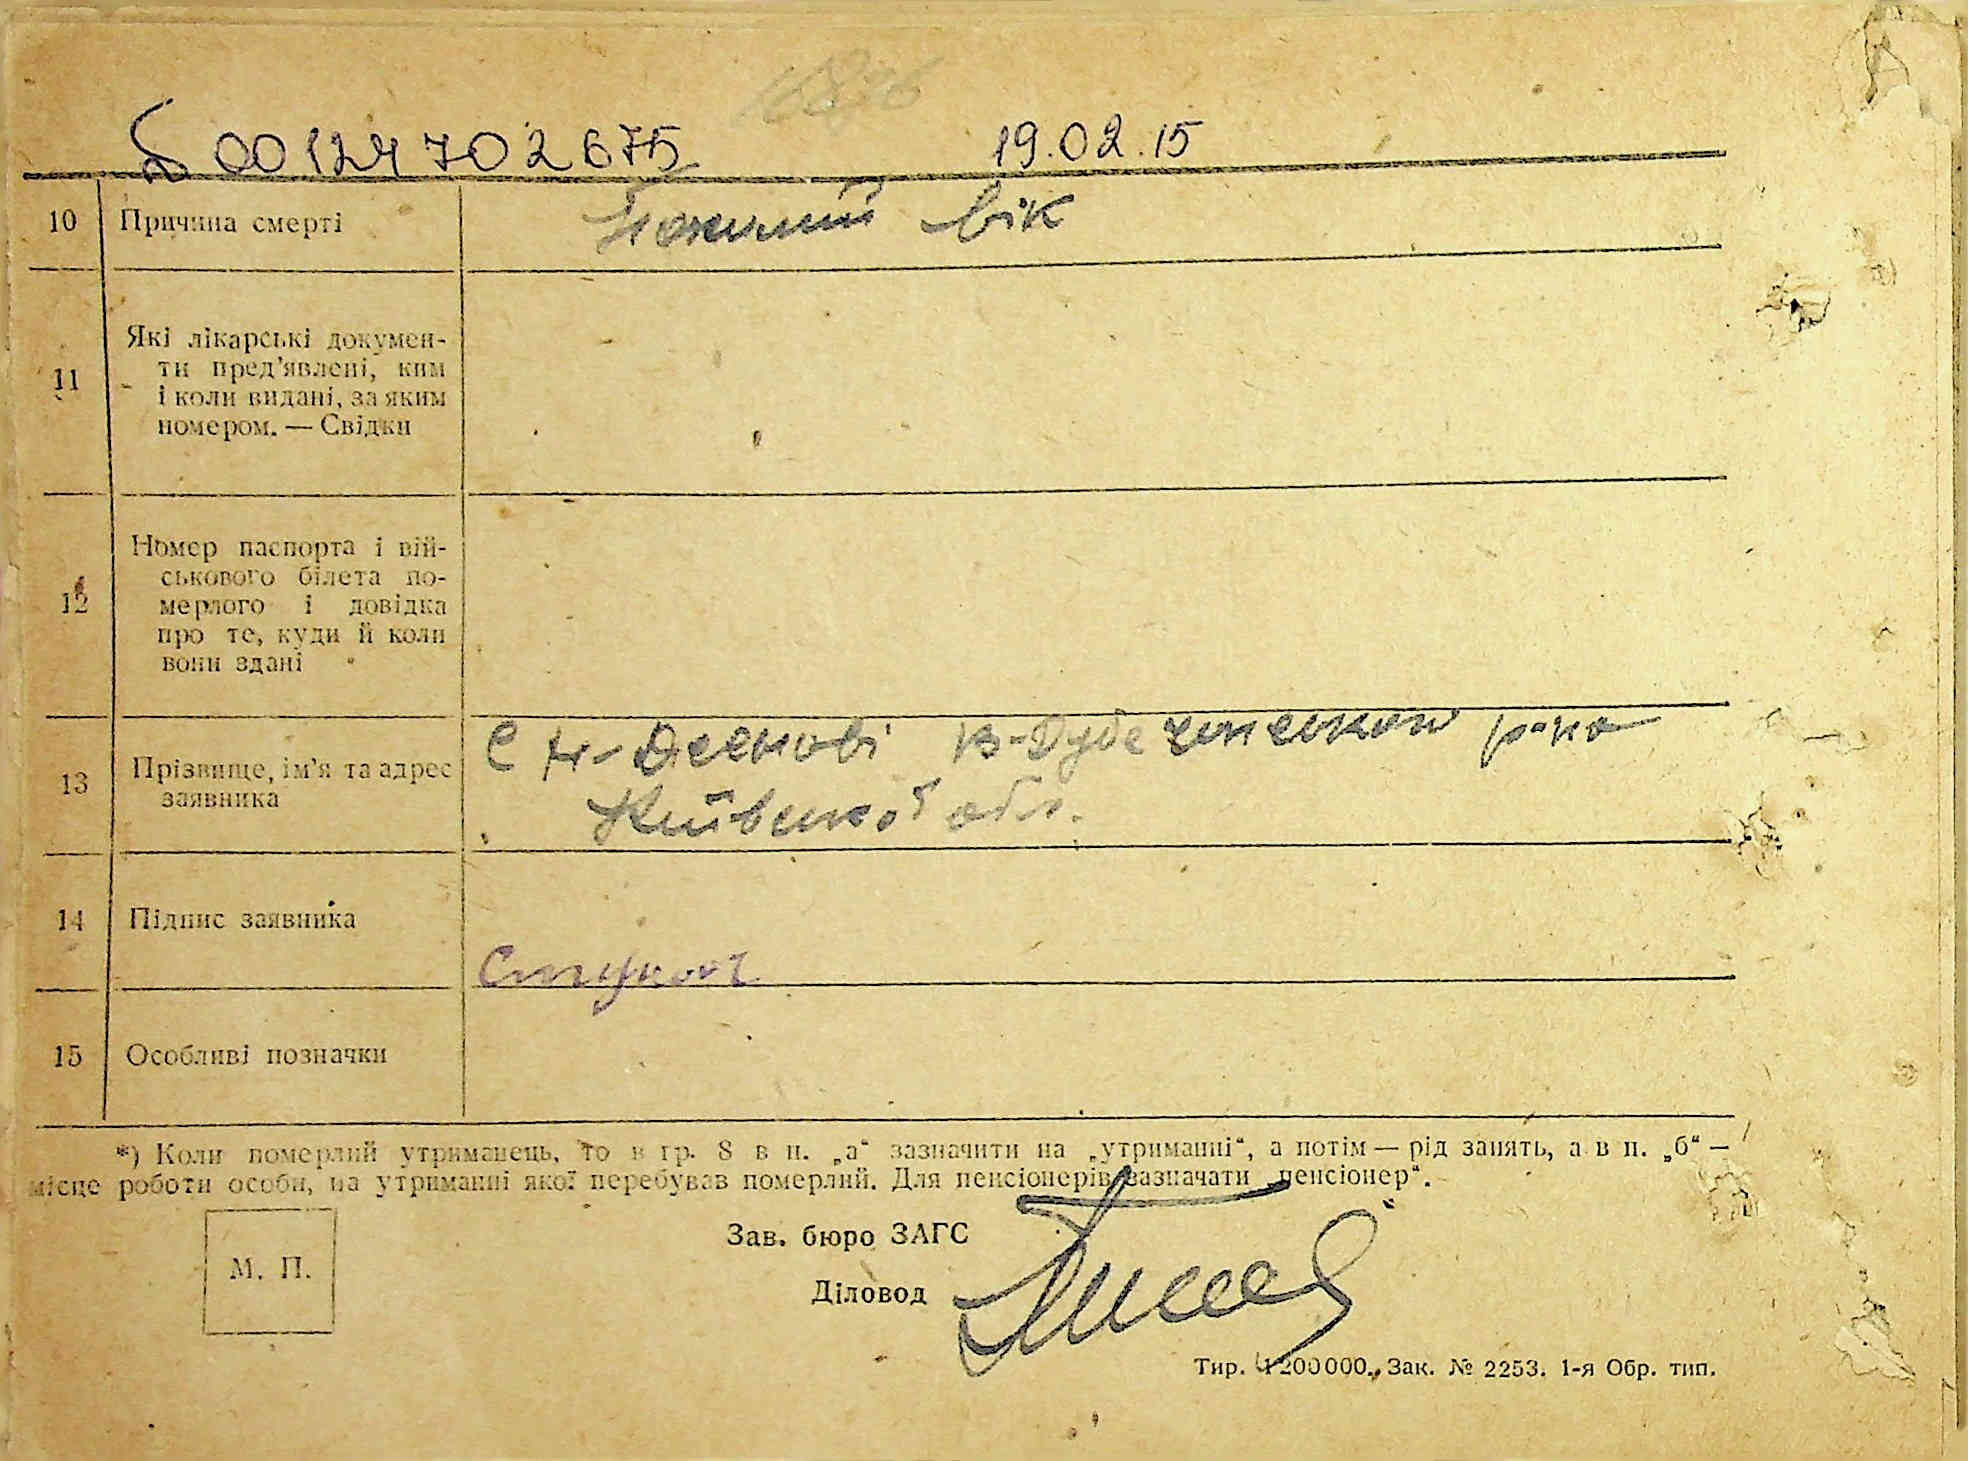 00124702675 19.02.15
10 Причина смерті Похилий вік
11 Які лікарські докумен-
ти пред'явлені, ким
і коли видані, за яким
номером. — Свідки
12 Номер паспорта і вій-
ськового білета по-
мерлого і довідка
про те, куди й коли
вони здані
С р-на
13 Прізвище, ім'я та адрес
заявника
Київської обл.
14 Підпис заявника
15 Особливі позначки
*) Коли померлий утриманець, то в гр. 8 в п. „а“ зазначити на „утриманні“, а потім — рід занять, а в п. „б“ —
місце роботи особи, на утриманні якої перебував померлий. Для пенсіонерів зазначати „пенсіонер“.
Зав. бюро ЗАГС
М. П.
Діловод
Тир. 1200000. Зак. № 2253. 1-я Обр. тип.